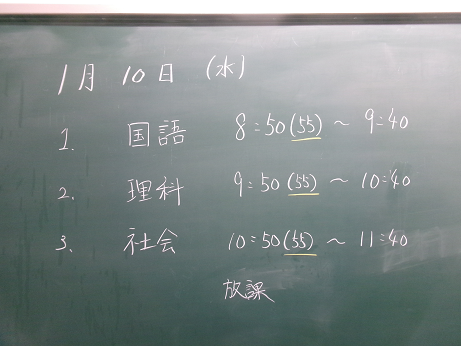 1月 10日 (水)
1. 国語 8:50(55) ~ 9:40
2. 理科 9:50(55) ~ 10:40
3. 社会 10:50(55) ~ 11:40
放課